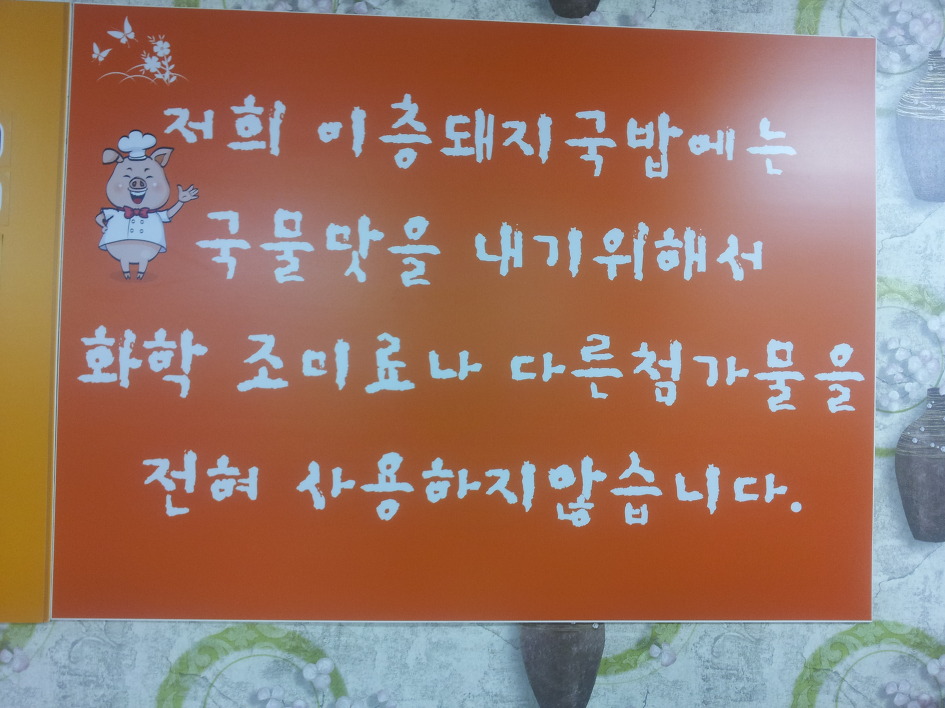 저희 이층돼지국밥에는
국물맛을 내기위해서
화학 조미료나 다른첨가물을
전혀 사용하지않습니다.